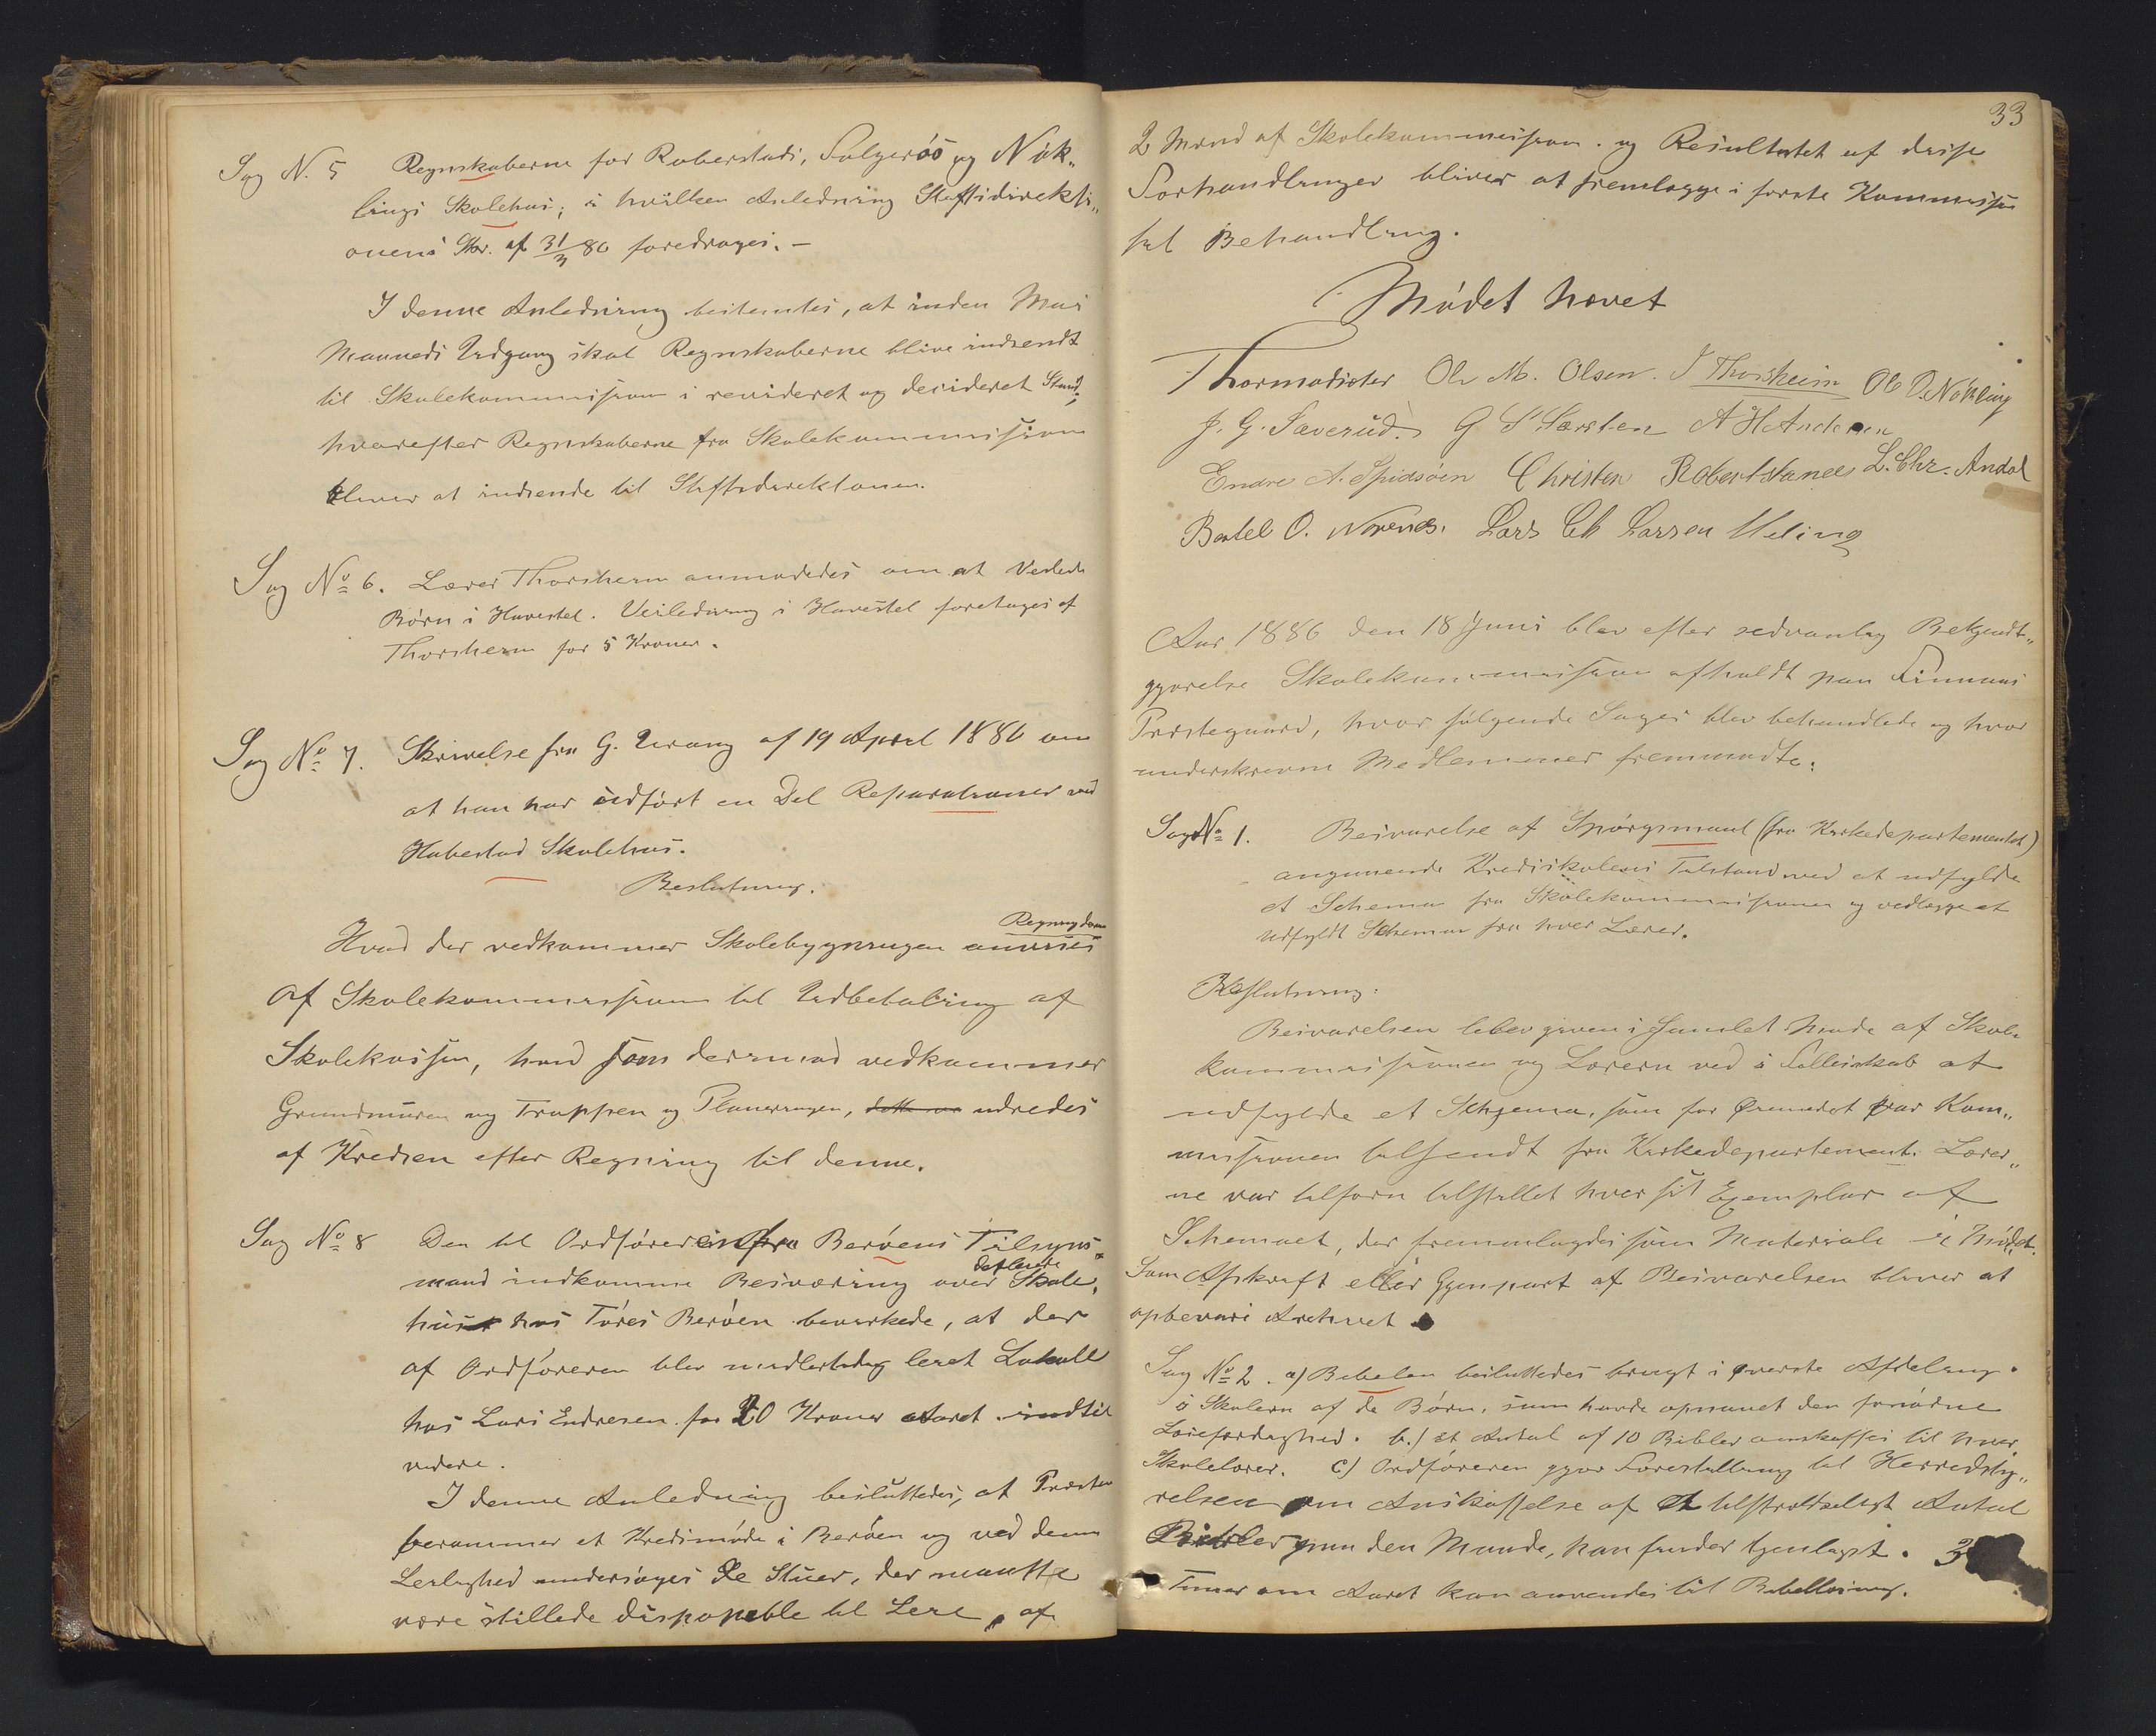 Sag N. 5 Regnskaberne for Roberstads, Folgerøs og Nøk„
lings Skolehus; i hvilken Anledning Stiftsdirekti„
onens Skr. af 31/3 86 foredrages. —
I denne Anledning bestemtes, at inden Mai
Maaneds Udgang skal Regnskaberne blive indsendt
til Skolekommissionen i revideret og decideret Stand,
hvorefter Regnskaberne fra Skolekommissionen
bliver at indsende til Stiftsdirektionen.
Sag No 6. Lærer Thorsheim anmodedes om at Veilede
Børn i Havestel. Veiledning i Havestel foretages af
Thorsheim for 5 Kroner.
Sag No 7. Skrivelse fra G. Urang af 19 April 1886 om
at han har udført en Del Reparationer ved
Habestad Skolehus.
Beslutning.
Regning dem
Hvad der vedkommer Skolebygningen anvises
af Skolekommissionen til Udbetaling af
Skolekassen, hvad som derimod vedkommer
Grundmuren og Trappen og Planeringen, udredes
af Kredsen efter Regning til denne.
Sag No 8 Den til Ordføreren fra Berøens Tilsyns„
mand indkomne Besværing over defecte Skole„
huset hos Tøres Berøen bevirkede, at der
af Ordføreren blev midlertidig leiet Lokale
hos Lars Endresen for 20 Kroner Aaret indtil
videre.
I denne Anledning besluttedes, at Præsten
berammer et Kredsmøde i Berøen og ved denne
Leilighed undersøges de Stuer, der maatte
være stillede disponible til Leie, af
33
2 Mænd af Skolekommissionen og Resultatet af disse
Forhandlinger bliver at fremlægge i første Kommission
til Behandling.
Mødet hævet
Thormodsæter Ole M. Olsen. J Thorsheim Ole O. Nökling
J. G. Sæverud. G S Særsten A H Andersen
Endre A. Spidsöen Christen Robertstanes L. Chr. Andal
Bertel O. Norenes. Lars Ch Larsen Meling
Aar 1886 den 18 Juni blev efter sedvanlig Bekjendt„
gjørelse Skolekommission afholdt paa Finnaas
Præstegaard, hvor følgende Sager blev behandlede og hvor
underskrevne Medlemmer fremmødte.
Sag No 1. Besvarelse af Spørgsmaal (fra Kirkedepartementet)
angaaende Kredsskolens Tilstand ved at udfylde
et Schema fra Skolekommissionen og vedlægge et
udfyldt Schema fra hver Lærer.
Beslutning:
Besvarelsen blev given i Samlet Møde af Skole
kommissionen og Lærern ved i Fællesskab at
udfylde et Schjema, som for Øiemedet var Kom„
missionen tilsendt fra Kirkedepartement. Lærer„
ne var tilforn tilstillet hver sit Exemplar af
Schemaet, der fremlagdes som Materiale i Mødet.
Som Afskrift eller Gjenpart af Besvarelsen bliver at
opbevare Archivet
Sag No 2. a) Bibelen besluttedes brugt i øverste Afdeling
i Skolern af de Børn, som havde opnaaet den fornødne
Læsefærdighed. b.) Et Antal af 10 Bibler anskaffes til hver
Skolelærer. c) Ordføreren gjør Forestilling til Herredsty„
relsen om Anskaffelse af et tilstrækkeligt Antal
Bibler paa den Maade, han finder tjenligst. 3
Timer om Aaret kan anvendes til Bibellæsning.